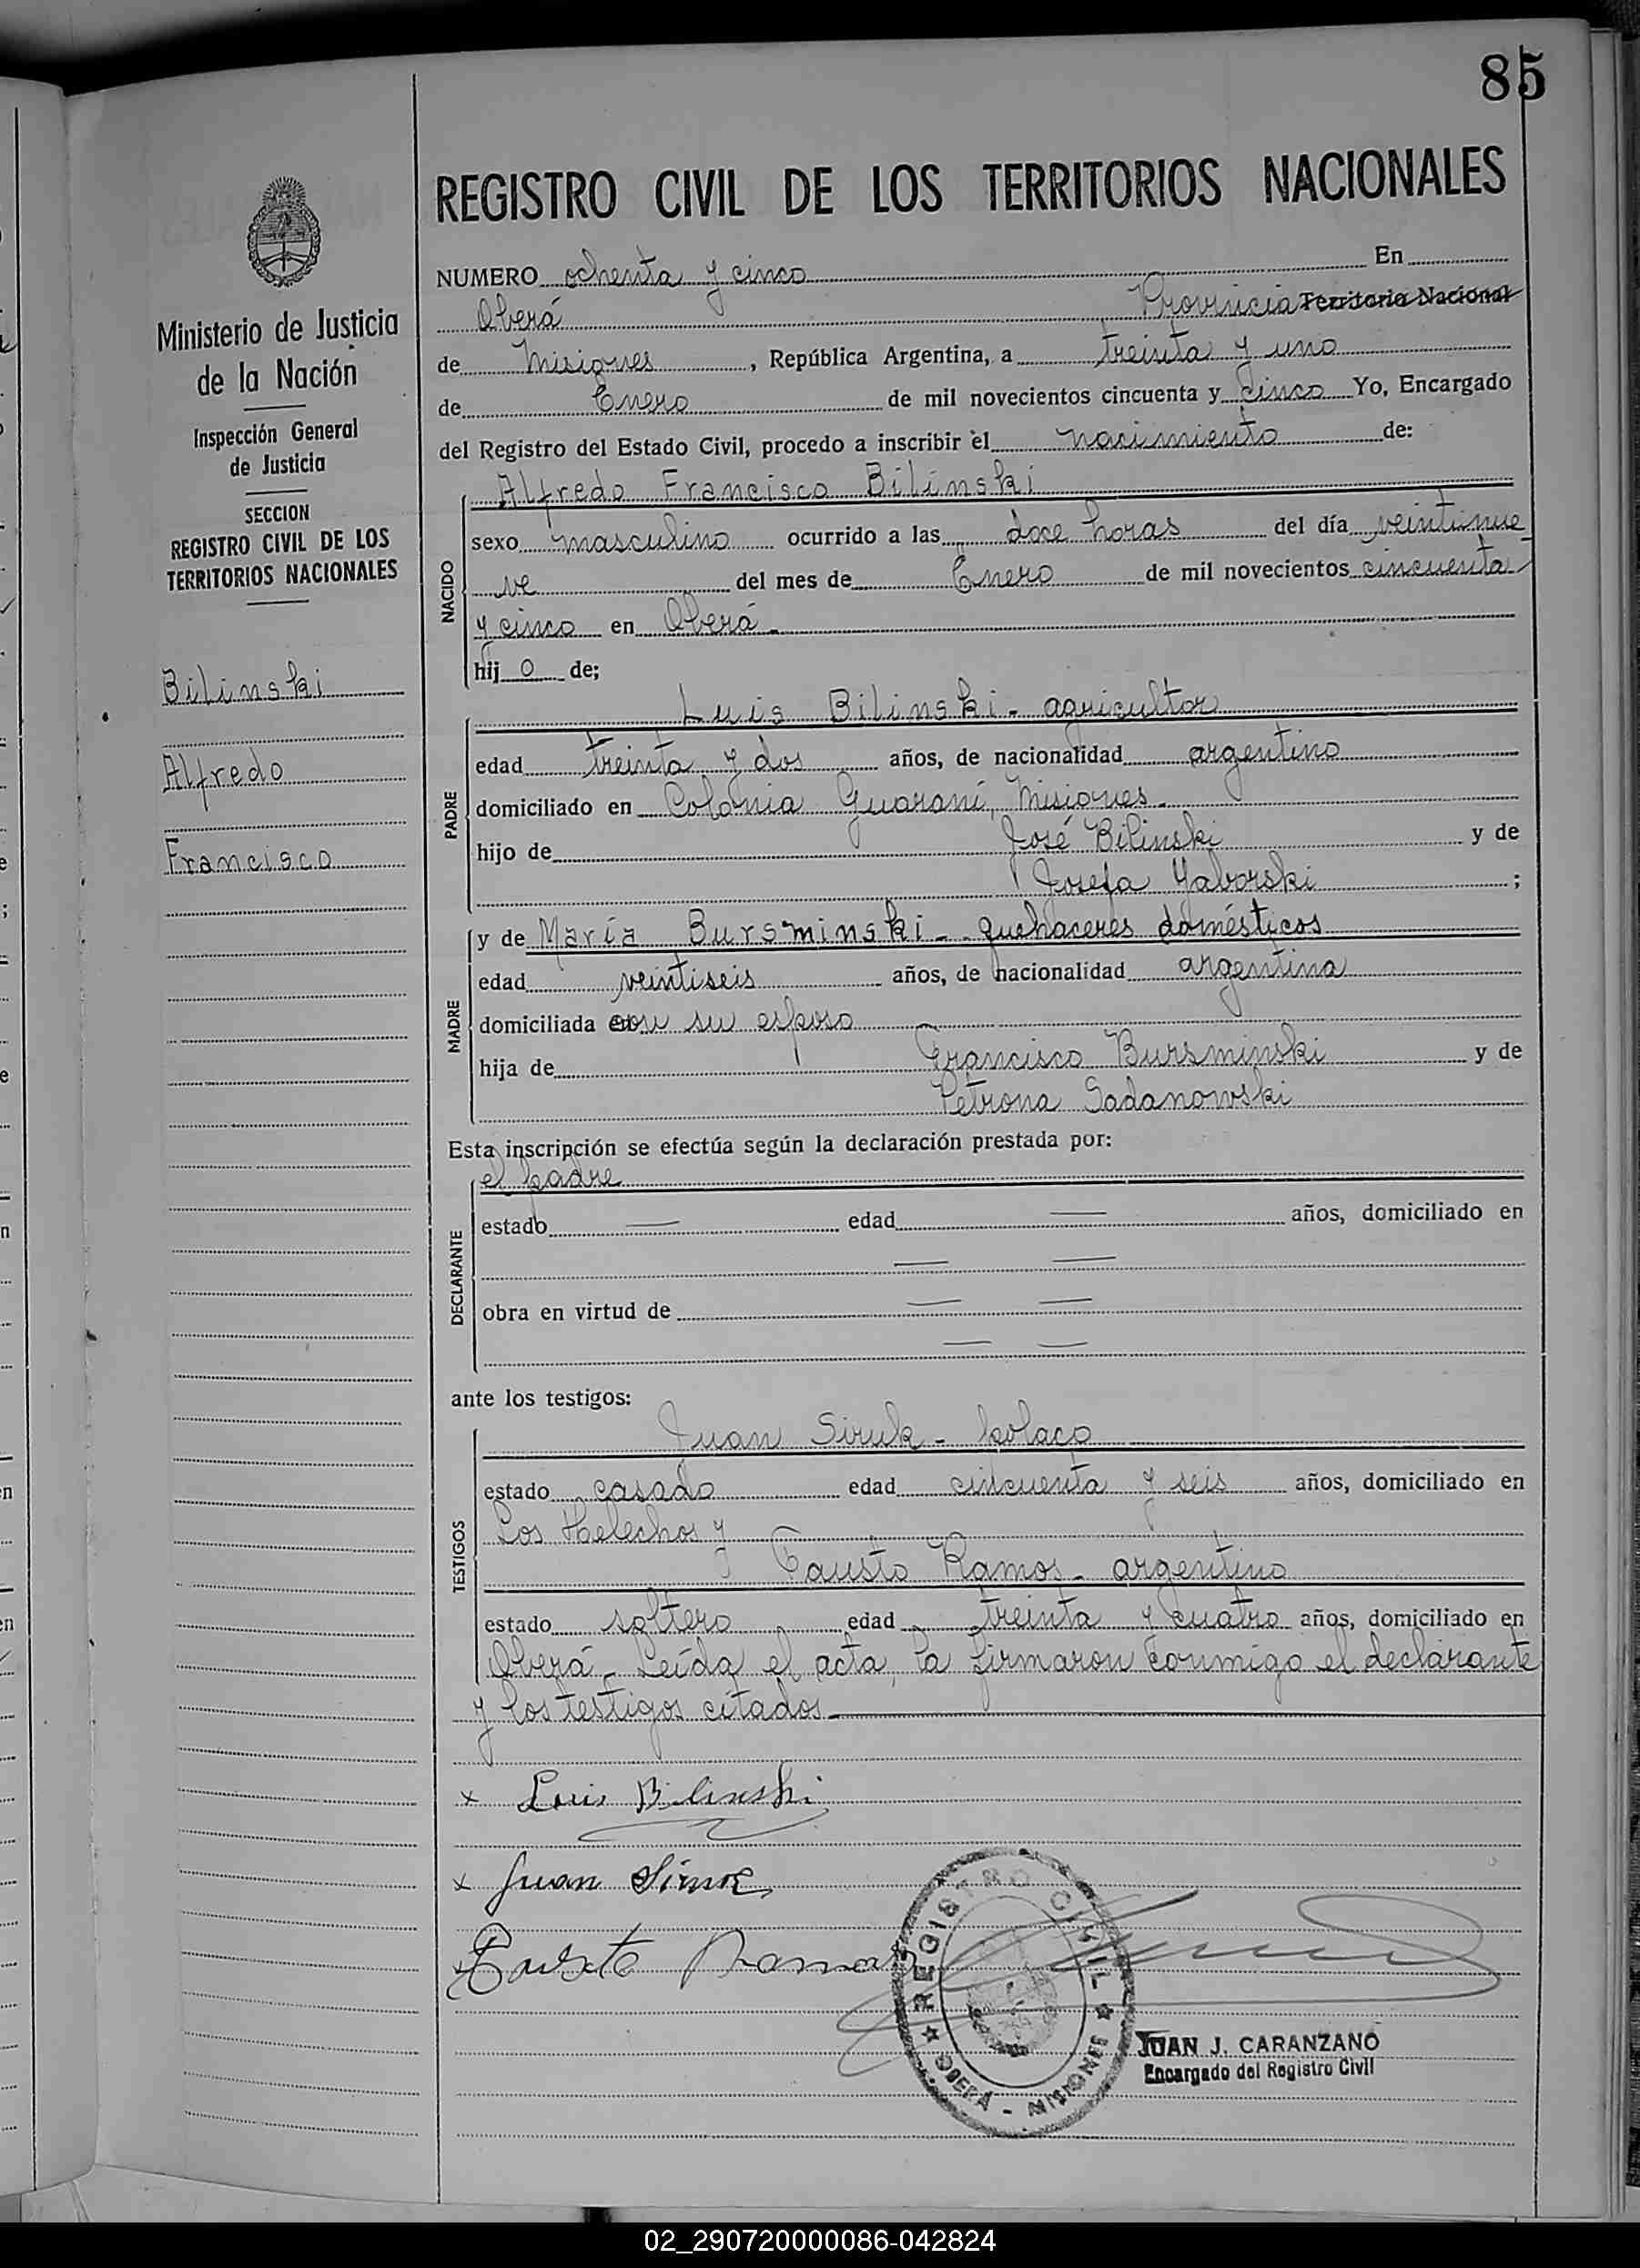 85
REGISTRO CIVIL DE LOS TERRITORIOS NACIONALES
NUMERO ochenta y cinco En
Oberá Provincia Territorio Nacional
de Misiones, República Argentina, a treinta y uno
de Enero de mil novecientos cincuenta y cinco Yo, Encargado
del Registro del Estado Civil, procedo a inscribir el nacimiento de:
Alfredo Francisco Bilinski
sexo masculino ocurrido a las doce horas del día veintinue-
ve del mes de Enero de mil novecientos cincuenta
y cinco en Oberá-
hijo de;
NACIDO
Luis Bilinski - agricultor
edad treinta y dos años, de nacionalidad argentino
domiciliado en Colonia Guaraní, Misiones-
hijo de José Bilinski y de
Josefa Yaborski ;
PADRE
y de María Bursminski - quehaceres domésticos
edad veintiseis años, de nacionalidad argentina
domiciliada con su esposo
hija de Francisco Bursminski y de
Petrona Sadanowski
MADRE
Esta inscripción se efectúa según la declaración prestada por:
el padre
estado — edad — años, domiciliado en
— —
obra en virtud de — —
— —
DECLARANTE
ante los testigos:
Juan Siruk - polaco
estado casado edad cincuenta y seis años, domiciliado en
Los Helechos y
Fausto Ramos - argentino
estado soltero edad treinta y cuatro años, domiciliado en
Oberá - Leída el acta, la firmaron conmigo el declarante
y los testigos citados
TESTIGOS
x Luis Bilinski
x Juan
x Fausto Ramos
REGISTRO CIVIL
OBERÁ - MISIONES
JUAN J. CARANZANO
Encargado del Registro Civil
Ministerio de Justicia
de la Nación
Inspección General
de Justicia
SECCION
REGISTRO CIVIL DE LOS
TERRITORIOS NACIONALES
Bilinski
Alfredo
Francisco
02_290720000086-042824